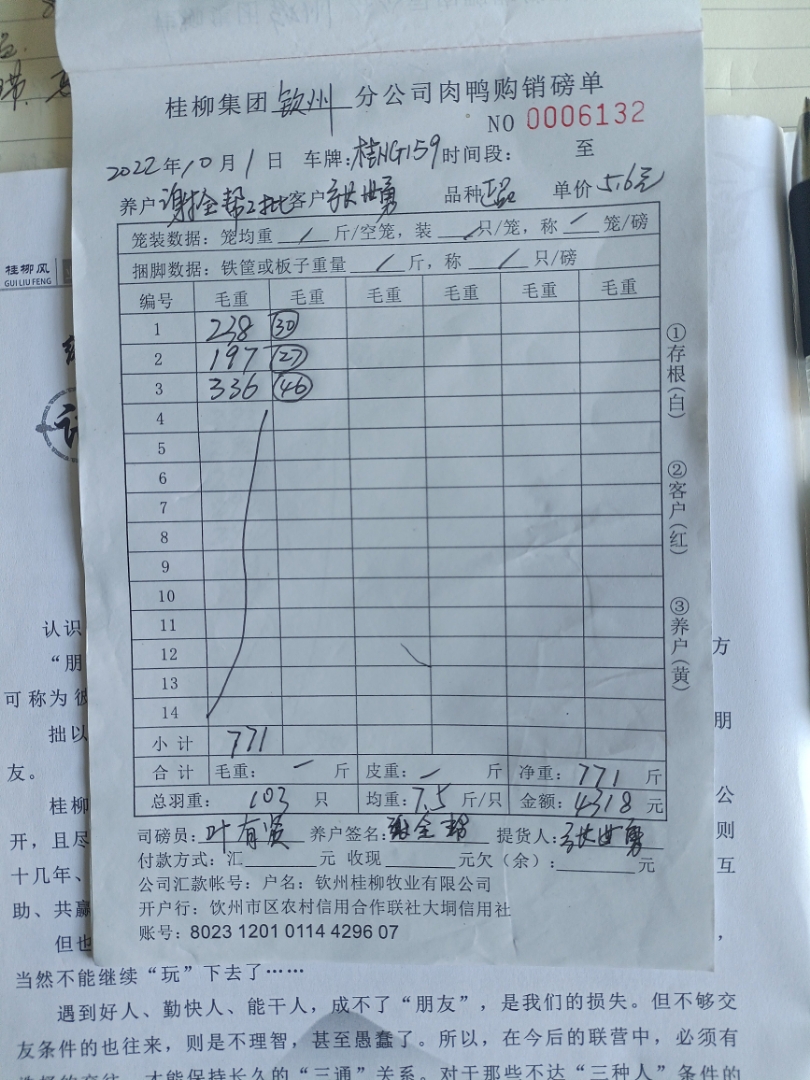 桂柳集团 钦州 分公司肉鸭购销磅单
NO 0006132
2022年10月1日 车牌:桂NG159 时间段: 至
养户 谢全帮2批 客户 张世勇 品种 正品 单价 5.6元
笼装数据:笼均重 / 斤/空笼,装 / 只/笼,称 / 笼/磅
捆脚数据:铁筐或板子重量 / 斤,称 / 只/磅
编号 毛重 毛重 毛重 毛重 毛重 毛重
1 238 30
2 197 27
3 336 46
4
5
6
7
8
9
10
11
12
13
14
小计 771
合计 毛重: - 斤 皮重: - 斤 净重: 771 斤
总羽重: 103 只 均重: 7.5 斤/只 金额: 4318 元
司磅员: 叶有贤 养户签名: 谢全帮 提货人: 张世勇
付款方式:汇 元 收现 元欠(余): 元
公司汇款帐号:户名:钦州桂柳牧业有限公司
开户行:钦州市区农村信用合作联社大垌信用社
账号:8023 1201 0114 4296 07
①存根(白)
②客户(红)
③养户(黄)
桂柳风
GUI LIU FENG
认识
“朋 方
可称为彼
拙以 朋
友。
桂柳 公
开,且尽 则
十几年、 互
助、共赢
但也 ,
当然不能继续“玩”下去了……
遇到好人、勤快人、能干人,成不了“朋友”,是我们的损失。但不够交
友条件的也往来,则是不理智,甚至愚蠢了。所以,在今后的联营中,必须有
选择的交往,才能保持长久的“三通”关系。对于那些不达“三种人”条件的